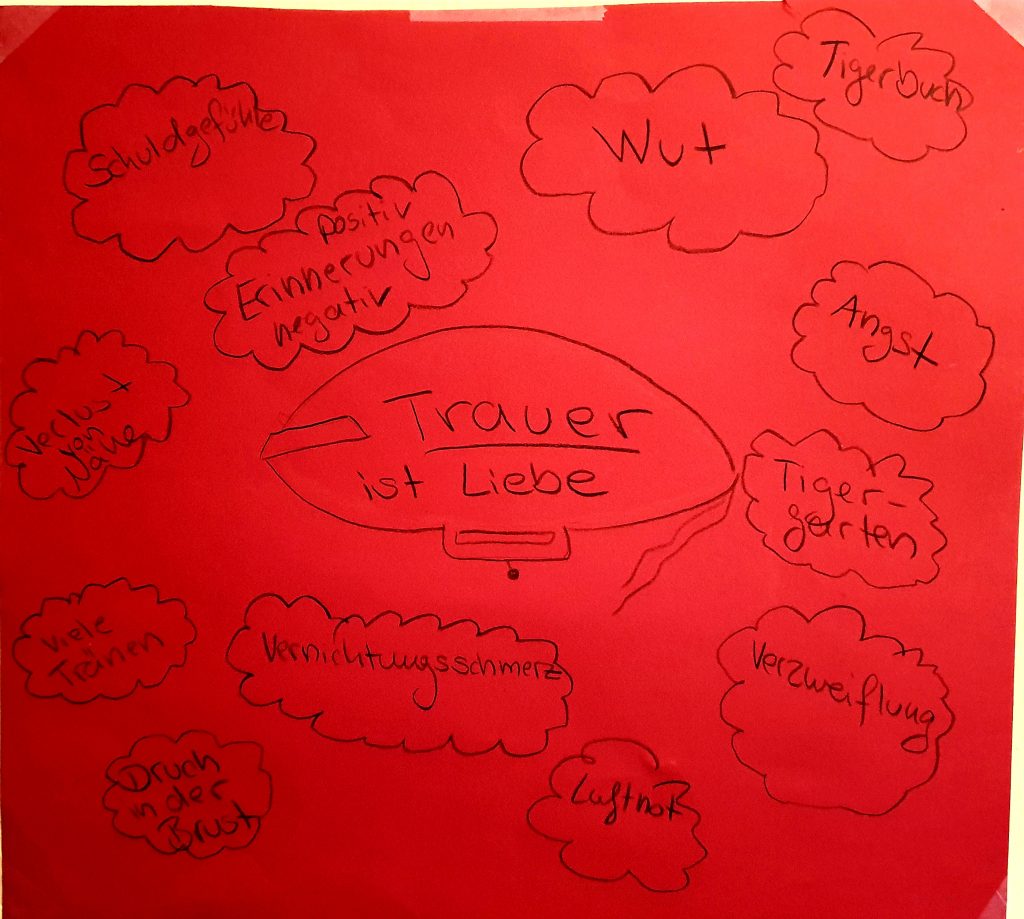 Tigerbuch
Schuldgefühle
Wut
positiv
Erinnerungen
negativ
Angst
Verlust
von
Nähe
Trauer
ist Liebe
Tiger-
garten
Viele
Tränen
Vernichtungsschmerz
Verzweiflung
Druck
in der
Brust
Luftnot